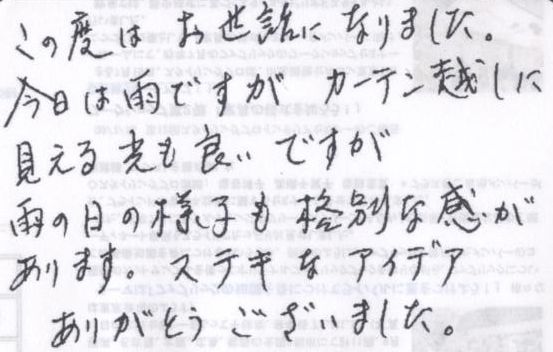 この度は お世話に なりました。
今日は雨ですが カーテン越しに
見える光も良いですが
雨の日の様子も格別な感が
あります ステキなアイデア
ありがとうございました。